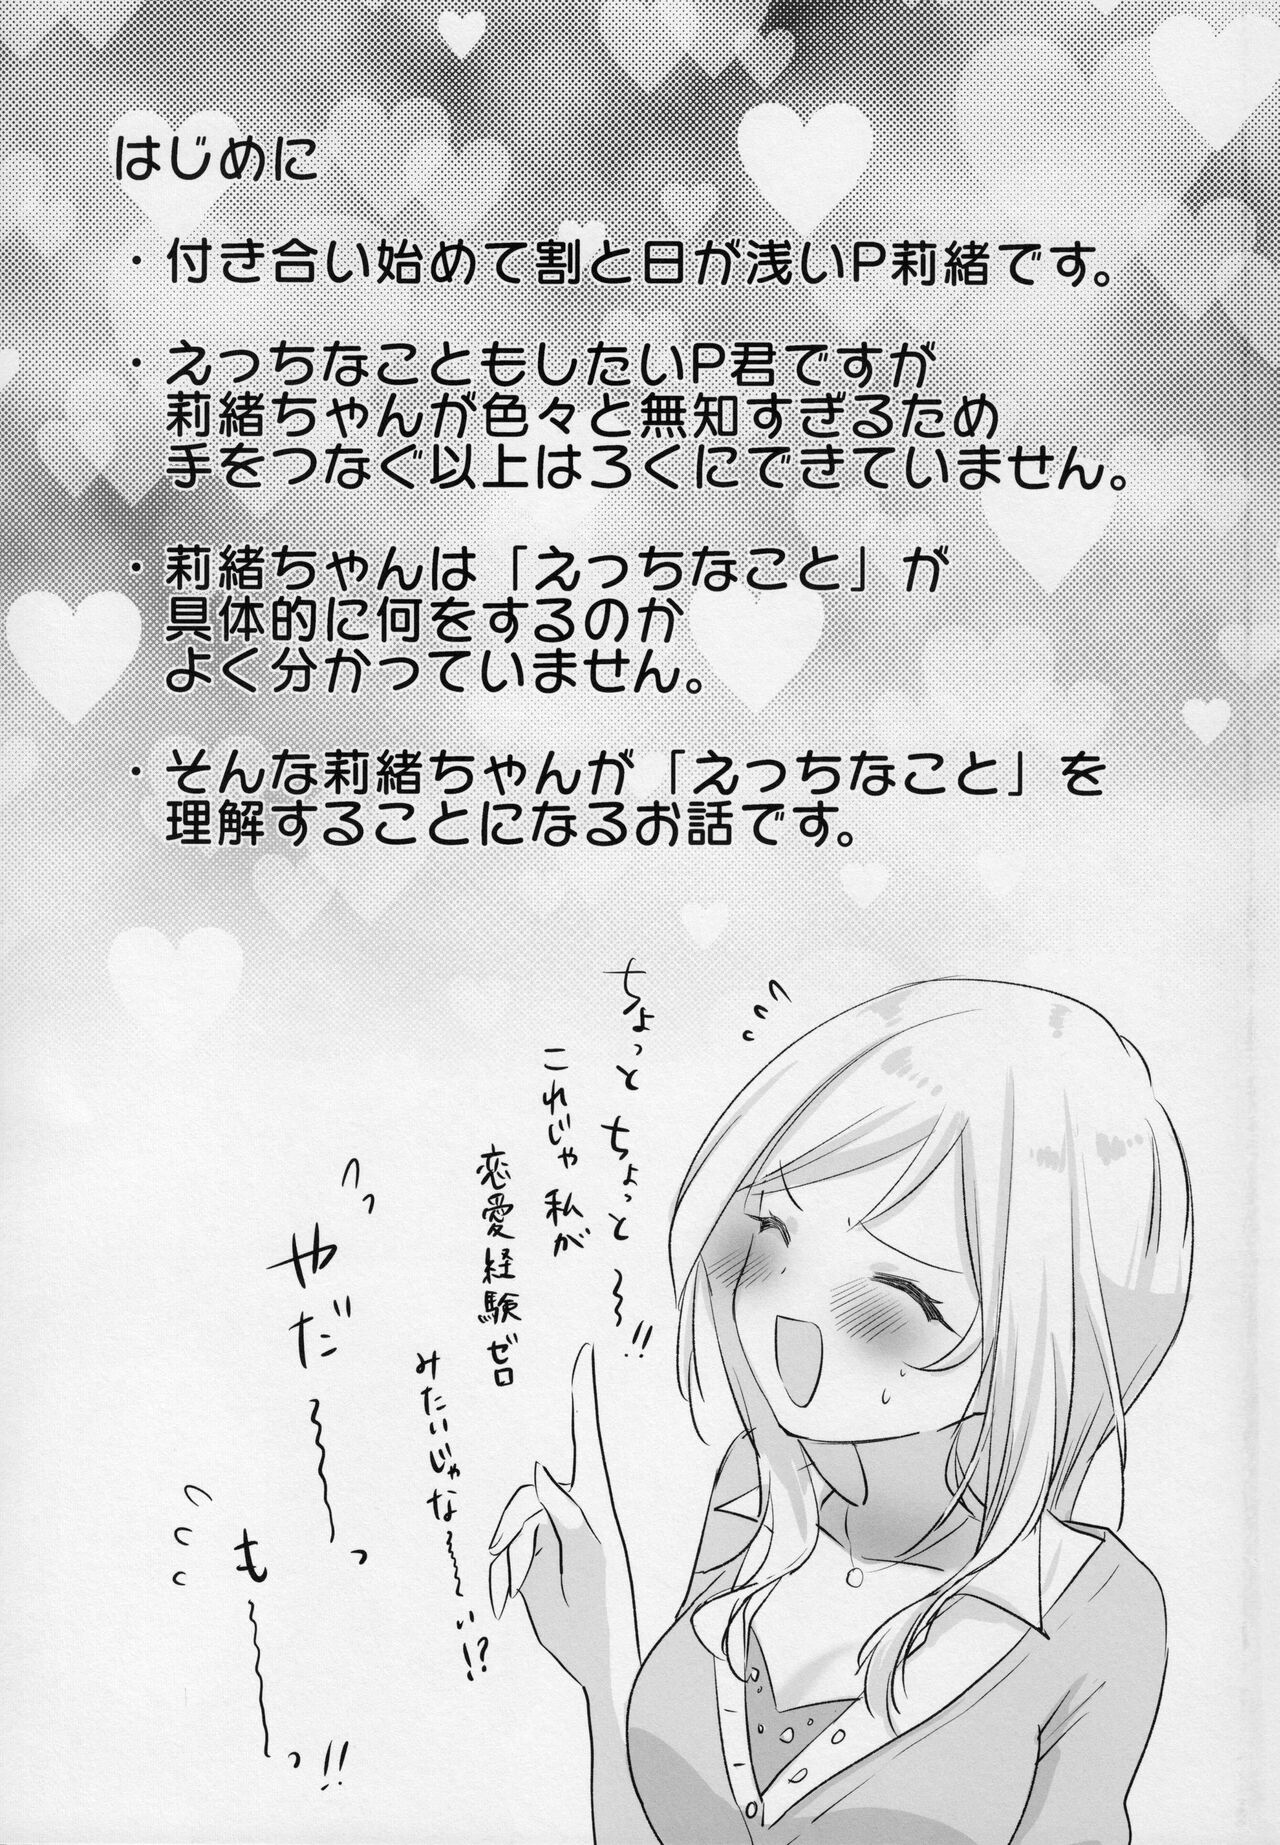 はじめに
・付き合い始めて割と日が浅いP莉緒です。
・えっちなこともしたいP君ですが
莉緒ちゃんが色々と無知すぎるため
手をつなぐ以上はろくにできていません。
・莉緒ちゃんは「えっちなこと」が
具体的に何をするのか
よく分かっていません。
・そんな莉緒ちゃんが「えっちなこと」を
理解することになるお話です。
ちょっとちょっと〜!!
これじゃ私が
恋愛経験ゼロ
みたいじゃな〜い!?
やだ〜っ
も〜っ!!